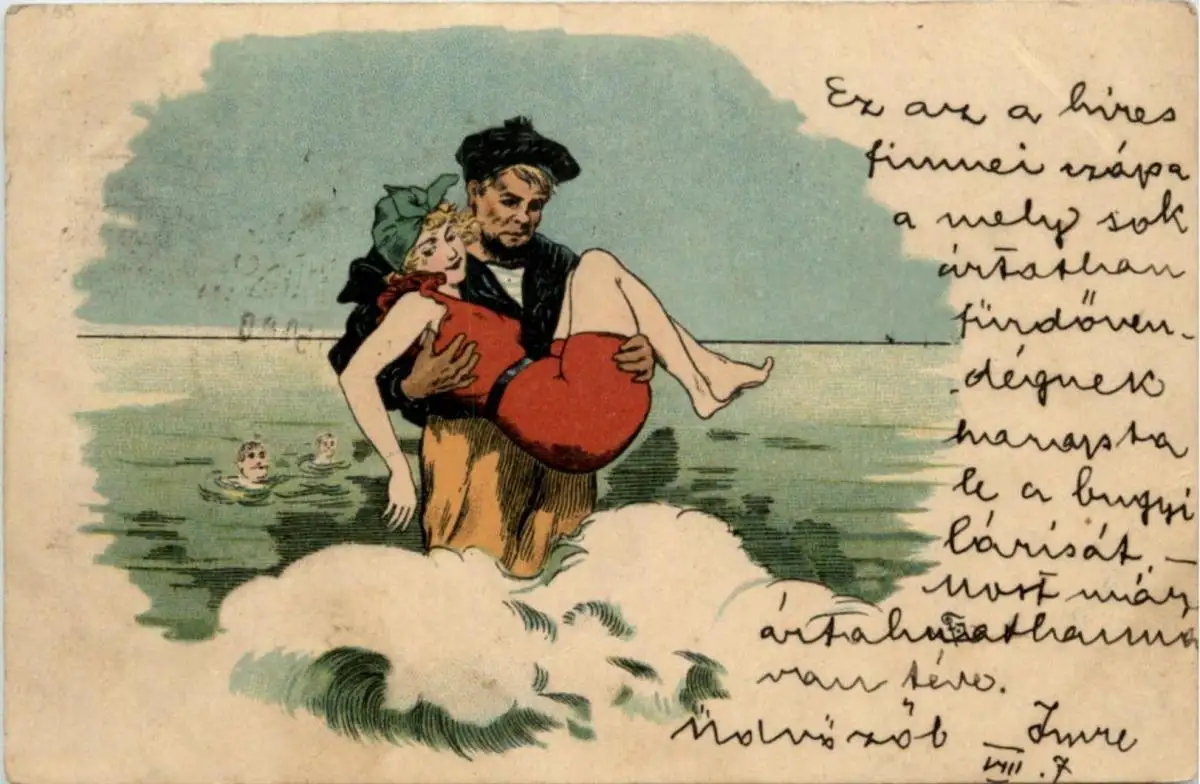 Ez az a hires
fiumei czápa
a mely sok
ártatlan
fürdőven-
dégnek
harapta
le a bugyi
lárisát. —
Most már
ártalmatlanná
van téve.
Üdvözöl Imre
VIII. 7